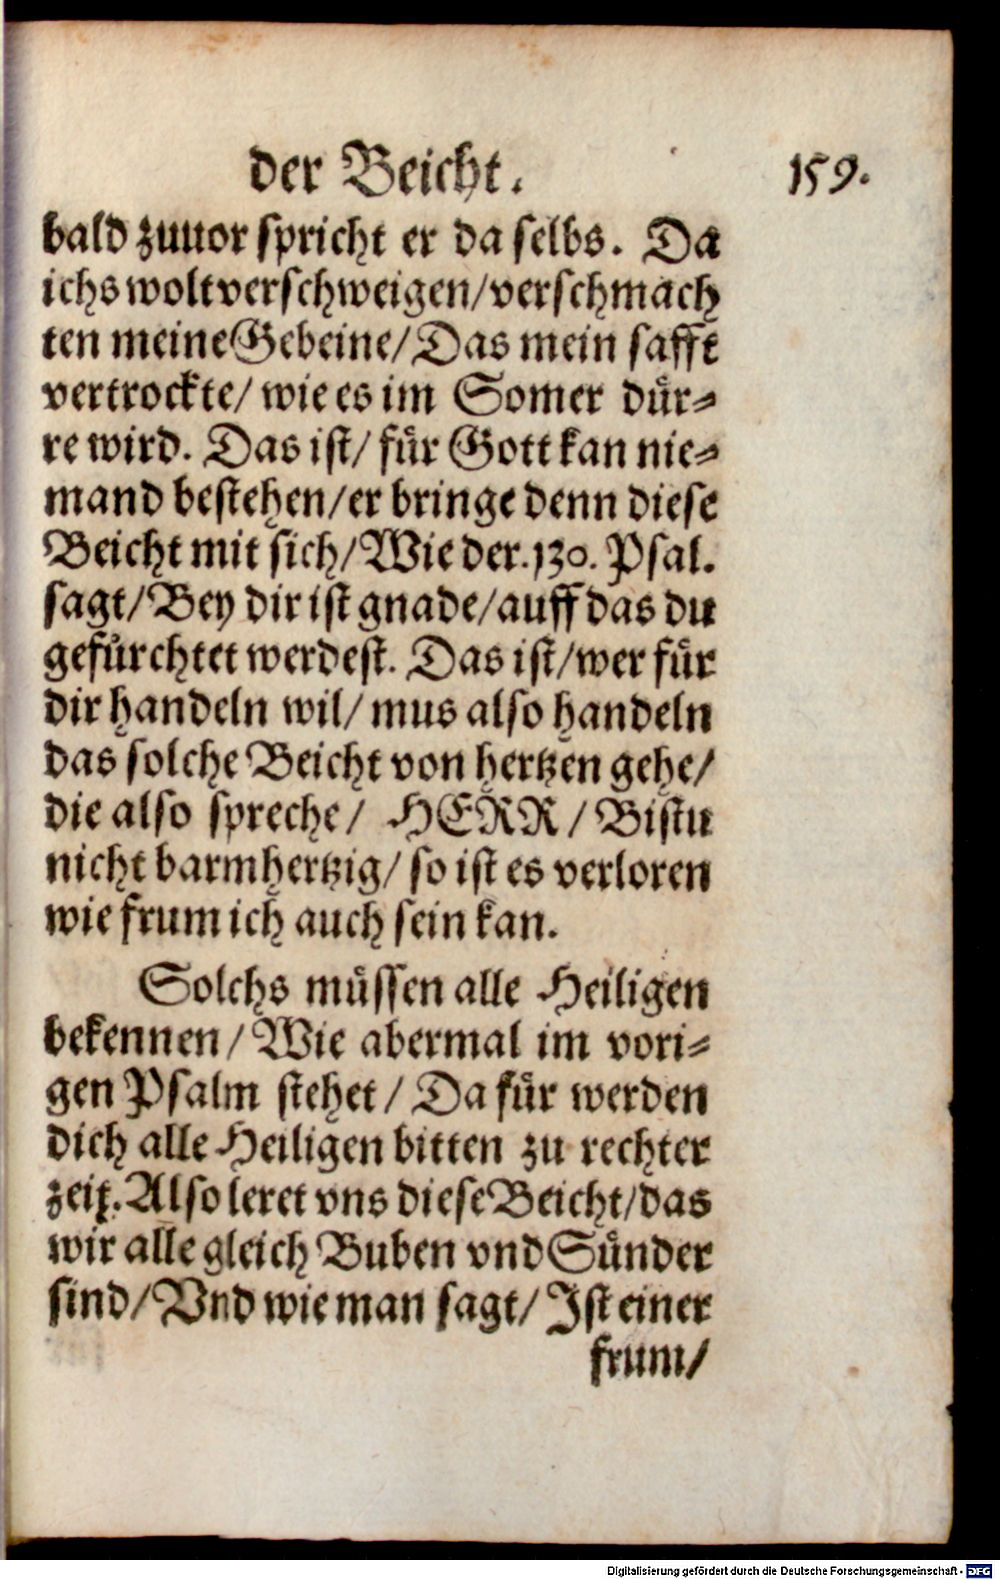 der Beicht. 159.
bald zuuor spricht er da selbs. Da
ichs wolt verschweigen/verschmach
ten meine Gebeine/Das mein safft
vertrockte/ wie es im Somer dür-
re wird. Das ist/ für Gott kan nie-
mand bestehen/er bringe denn diese
Beicht mit sich/Wie der.130. Psal.
sagt/Bey dir ist gnade/auff das du
gefürchtet werdest. Das ist/wer für
dir handeln wil/ mus also handeln
das solche Beicht von hertzen gehe/
die also spreche/ HERR/ Bistu
nicht barmhertzig/ so ist es verloren
wie frum ich auch sein kan.
Solchs müssen alle Heiligen
bekennen/Wie abermal im vori-
gen Psalm stehet/ Da für werden
dich alle Heiligen bitten zu rechter
zeit. Also leret vns diese Beicht/das
wir alle gleich Buben vnd Sünder
sind/Vnd wie man sagt/ Ist einer
frum/
Digitalisierung gefördert durch die Deutsche Forschungsgemeinschaft - DFG